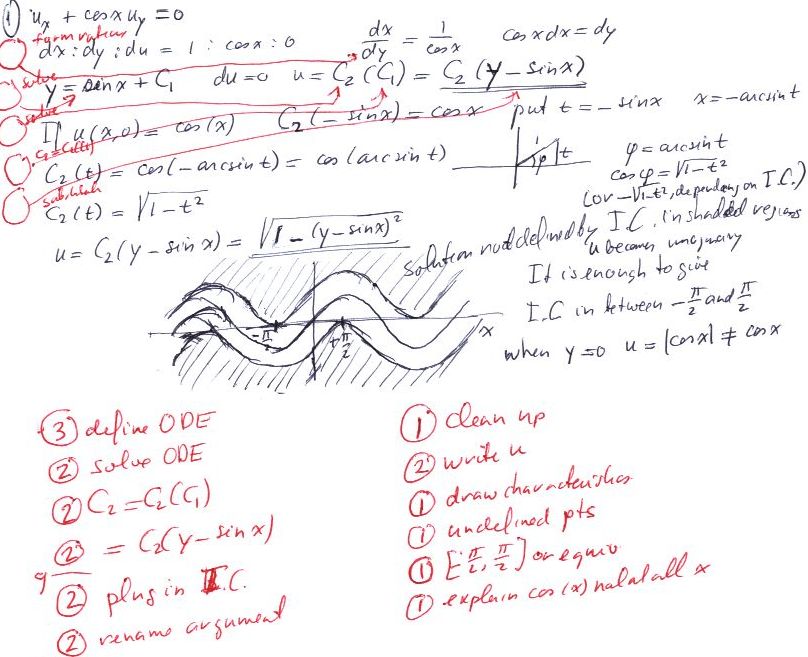 ① u_x + cosx u_y = 0
formvation
dx : dy : du = 1 : cosx : 0
dx/dy = 1/cosx
cosxdx = dy
solve
y = sinx + C₁
du=0
u = C₂(C₁) = C₂(y-sinx)
solve
If u(x,0) = cos(x)
C₂(-sinx) = cosx
put t = -sinx
x = -arcsint
C₂=C₂(t)
C₂(t) = cos(-arcsint) = cos(arcsint)
1
φ
t
φ = arcsint
cosφ = √1-t²
(or -√1-t², depending on I.C.)
substitute
C₂(t) = √1-t²
u = C₂(y-sinx) = √1-(y-sinx)²
Solution not defined by I.C. in shaded regions
u becomes imaginary
It is enough to give
I.C in between -π/2 and π/2
when y=0 u = |cosx| ≠ cosx
-π/2
+π/2
x
③ define ODE
② solve ODE
② C₂ = C₂(C₁)
② = C₂(y-sinx)
9
② plug in I.C.
② rename argument
① clean up
② write u
① draw characteristics
① undefined pts
① [-π/2, π/2] or equiv
① explain cos(x) not at all x